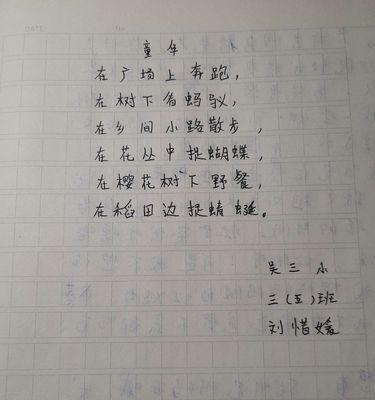 童年
在广场上奔跑，
在树下看蚂蚁，
在乡间小路散步，
在花丛中捉蝴蝶，
在樱花树下野餐，
在稻田边捉蜻蜓。
吴三小
三（五）班
刘惜媛